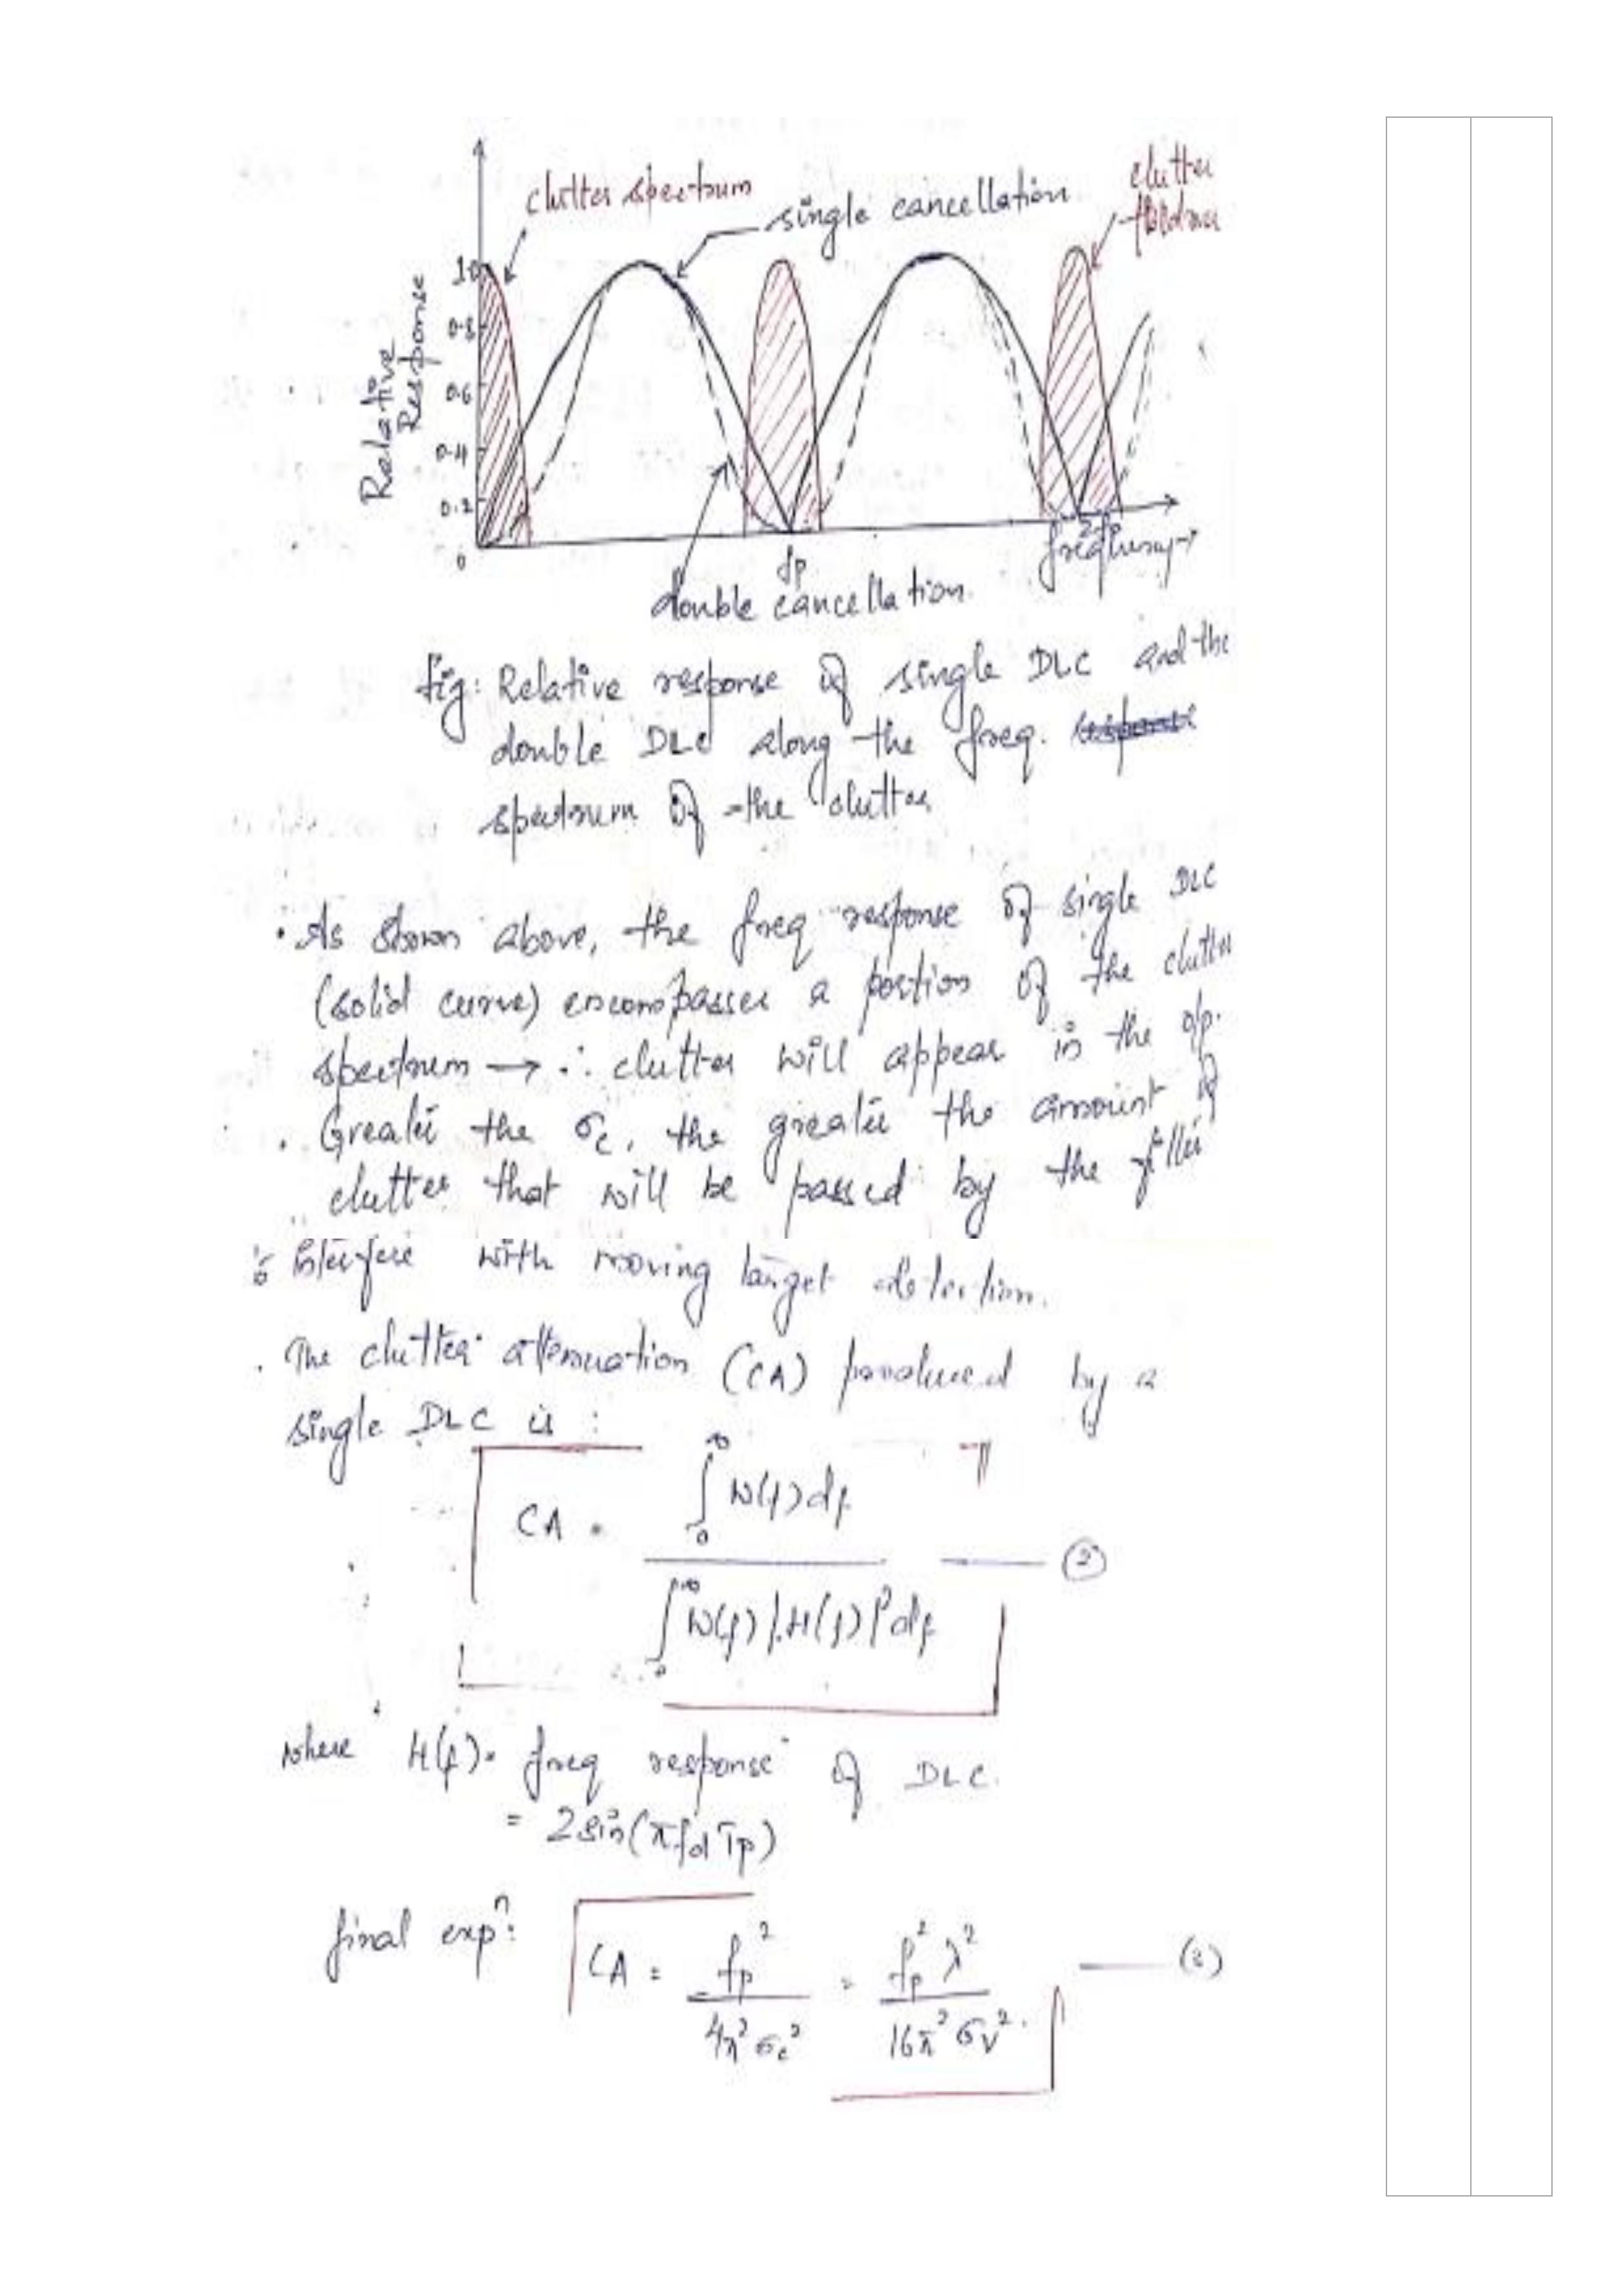 clutter spectrum
single cancellation
clutter
Relative
Response
1.0
0.8
0.6
0.4
0.2
0
fp
2fp
frequency→
double cancellation.
fig: Relative response of single DLC and the
double DLC along the freq.
spectrum of the clutter
• As shown above, the freq response of single DLC
(solid curve) encompasses a portion of the clutter
spectrum → ∴ clutter will appear in the o/p.
• Greater the σc, the greater the amount of
clutter that will be passed by the filter
Interfere with moving target detection.
• The clutter attenuation (CA) produced by a
single DLC is :
CA = ∫₀^∞ W(f) df / ∫₀^∞ W(f) |H(f)|² df — (2)
where H(f) = freq response of DLC.
= 2 sin(π fd Tp)
final expⁿ: CA = fp² / 4π² σc² = fp² λ² / 16π² σv². — (3)